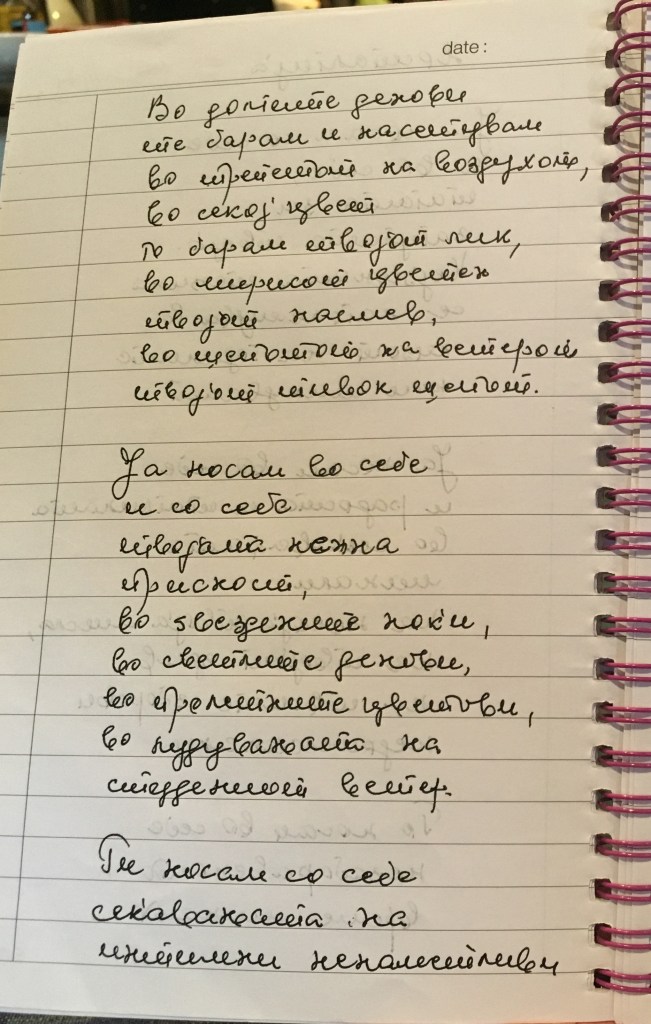 date:
Во долгите денови
те барам и насетувам
во трепетот на воздухот,
во секој цвет
го барам твојот лик,
во мирисот цветен
твојот насмев,
во шепотот на ветерот
твојот пивок шепот.
Ја носам во себе
и со себе
твојата нежна
присност,
во ѕвездените ноќи,
во светлите денови,
во пролетните цветови,
во лудувањата на
студениот ветер.
Ги носам со себе
сеќавањата на
интимни ненаметливи